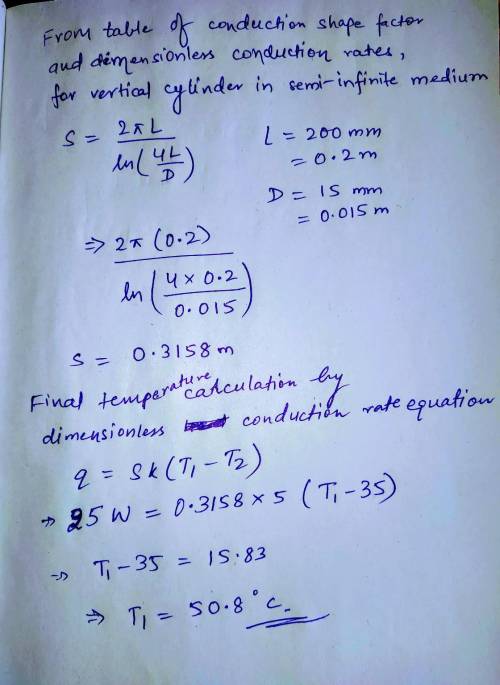 From table of conduction shape factor
and dimensionless conduction rates,
for vertical cylinder in semi-infinite medium
S = 2πL / ln(4L/D)
L = 200 mm
= 0.2 m
D = 15 mm
= 0.015 m
⇒ 2π (0.2) / ln(4 × 0.2 / 0.015)
S = 0.3158 m
Final temperature calculation by
dimensionless conduction rate equation
q = Sk(T₁ - T₂)
→ 25 W = 0.3158 × 5 (T₁ - 35)
→ T₁ - 35 = 15.83
⇒ T₁ = 50.8°C.